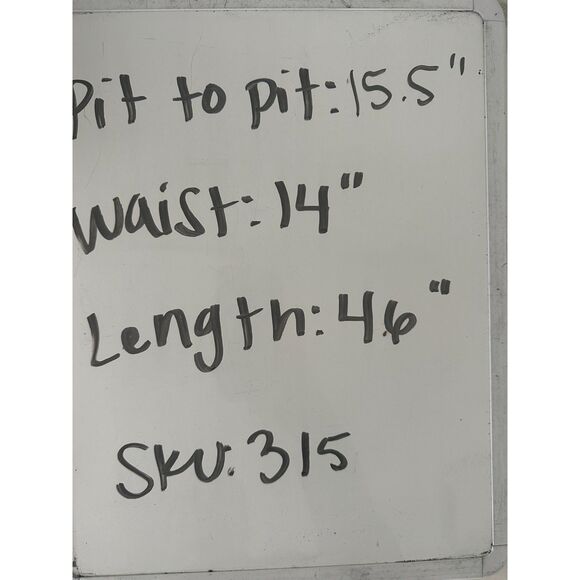 Pit to pit: 15.5"
Waist: 14"
Length: 46"
SKU: 315